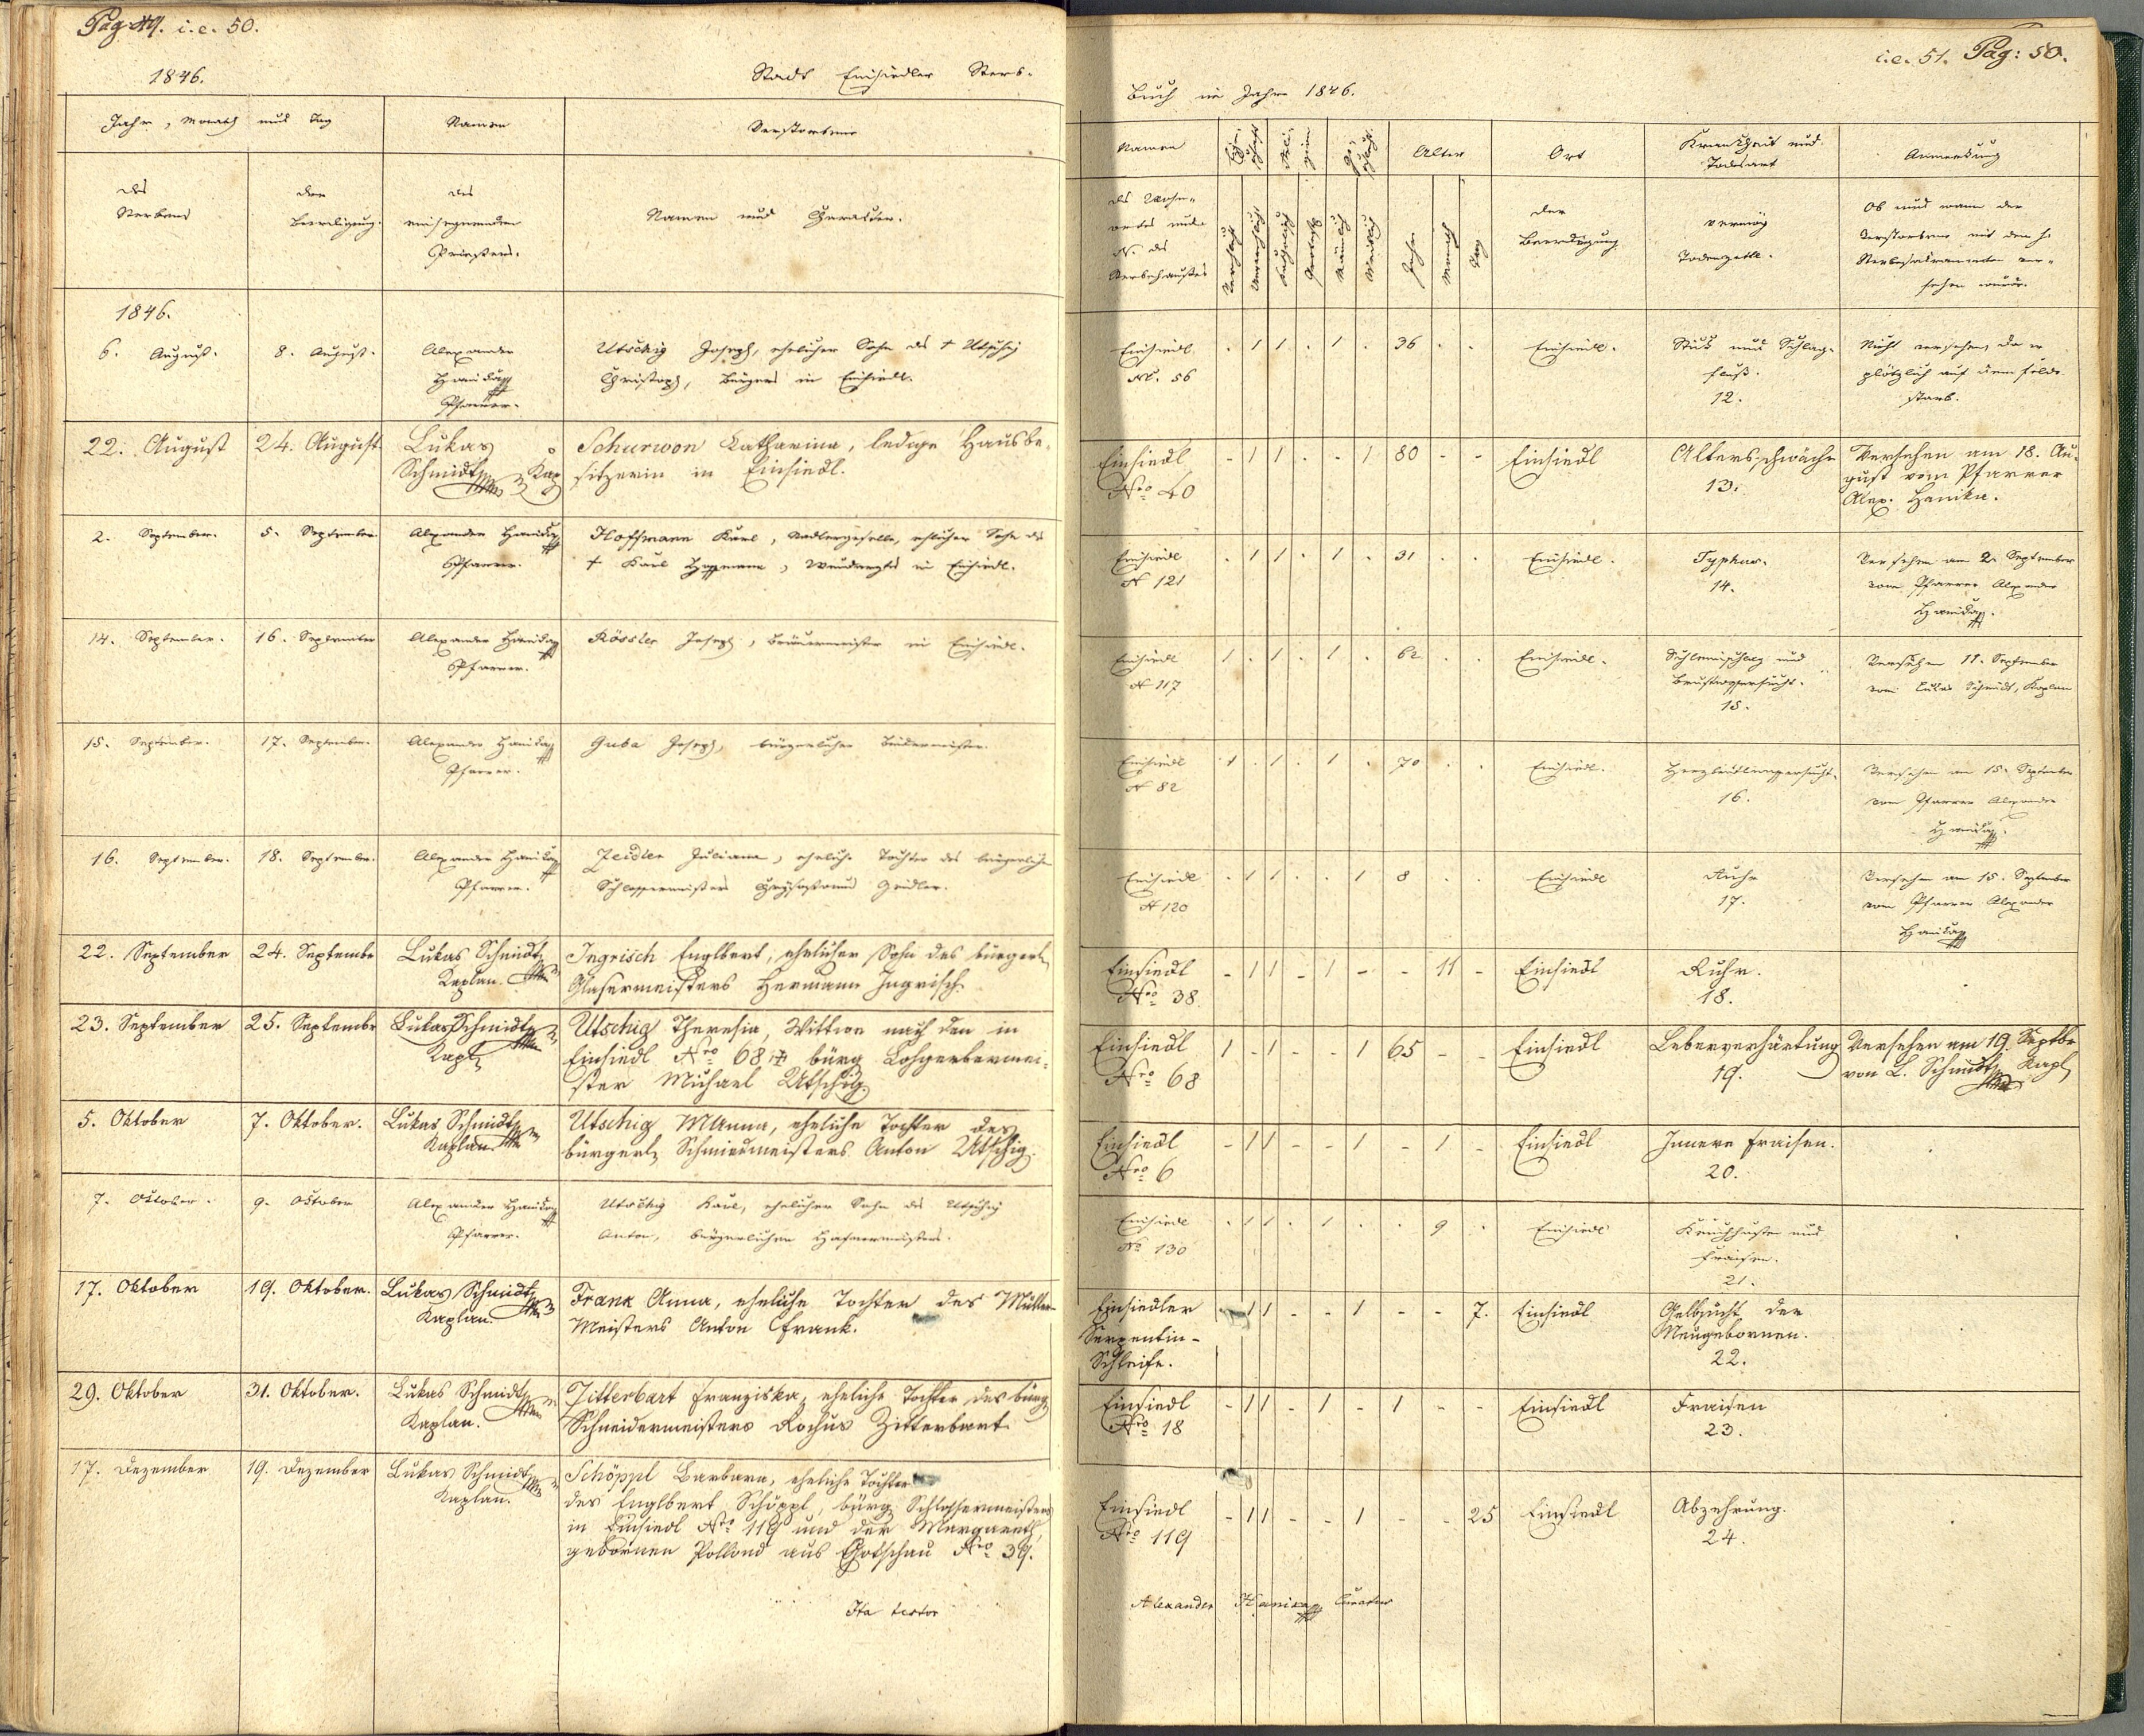 Pag 49. i.e. 50.
1846.
Stadt Einsiedler Sterb-
Jahr, Monath und Tag
Namen
Verstorbene
des
Sterbens
der
Beerdigung.
des
einsegnenden
Priesters.
Namen und Charakter.
1846.
6. August. 8. August. Alexander Utschig Joseph, ehelicher Sohn des † Utschig
Hanika Christoph, Bürgers in Einsiedl.
Pfarrer.
22. August 24. August Lukas Schurwon Katharina, ledige Hausbe-
Schmidt Kap sitzerin in Einsiedl.
2. September. 5. September. Alexander Hanika Hoffmann Karl, Nadlergeselle, ehlicher Sohn des
Pfarrer. † Karl Hoffmann, Wundarztes in Einsiedl.
14. September. 16. September Alexander Hanika Rössler Joseph, Bräuermeister in Einsiedl.
Pfarrer.
15. September. 17. September. Alexander Hanika Guba Joseph, bürgerlicher Bindermeister.
Pfarrer.
16. September. 18. September. Alexander Hanika Zeidler Juliana, eheliche Tochter des bürgerlichen
Pfarrer. Schlossermeisters Zeidler.
22. September 24. Septembe Lukas Schmidt Ingrisch Englbert, ehelicher Sohn des bürgerl
Kaplan. Glasermeisters Hermann Ingrisch.
23. September 25. Septembr Lukas Schmidt Utschig Theresia, Wittwe nach den in
Kapl Einsiedl Nro 68 † bürg Lohgerbermei-
ster Michael Utschig.
5. Oktober 7. Oktober. Lukas Schmidt Utschig MAnna, eheliche Tochter des
Kaplan. bürgerl Schmiedmeisters Anton Utschig.
7. Oktober. 9. Oktober Alexander Hanika Utschig Karl, ehelicher Sohn des Utschig
Pfarrer. Anton, bürgerlichen Hafnermeisters.
17. Oktober 19. Oktober. Lukas Schmidt Frank Anna, eheliche Tochter des Müller-
Kaplan. Meisters Anton Frank.
29. Oktober 31. Oktober. Lukas Schmidt Zitterbart Franziska, eheliche Tochter des bürg
Kaplan. Schneidermeisters Rochus Zitterbart.
17. Dezember 19. Dezember Lukas Schmidt Schöppl Barbara, eheliche Tochter
Kaplan. des Englbert Schöppl, bürg Schlossermeisters
in Einsiedl Nro 119 und der Margareth,
gebornen Polland aus Gotschau Nro 39.
Ita testor
i.e. 51. Pag: 50.
Buch im Jahre 1846.
Namen
Reli-
gion
Ge-
schlecht
Alter
Ort
Krankheit und
Todesart
Anmerkung
des Wohn-
ortes und
N. des
Sterbehauses
Verehlicht
Unverehlicht
Katholisch
Protest
Männlich
Weiblich
Jahre
Monath
Tag
der
Beerdigung
vermög
Todenzettl.
Ob und wann der
Verstorbene mit den h.
Sterbsakramenten ver-
sehen wurde.
Einsiedl . 1 1 . 1 . 36 . . Einsiedl. Stick und Schlag- Nicht versehen, da er
N. 56 fluß. plötzlich auf dem Felde
12. starb.
Einsiedl - 1 1 . . 1 80 - - Einsiedl Altersschwäche Versehen am 18. Au-
Nro 40 13. gust vom Pfarrer
Alex. Hanika.
Einsiedl . 1 1 . 1 . 31 . . Einsiedl. Typhus. Versehen am 2. September
N 121 14. vom Pfarrer Alexander
Hanika.
Einsiedl 1 . 1 . 1 . 62 . . Einsiedl. Schleimschlag und Versehen 11. September
N 117 Brustwassersucht. vom Lukas Schmidt, Kaplan
15.
Einsiedl 1 . 1 . 1 . 70 . . Einsiedl. Herzbeutlwassersucht. Versehen am 15. September
N 82 16. vom Pfarrer Alexander
Hanika.
Einsiedl . 1 1 . . 1 8 . . Einsiedl Ruhr Versehen am 15. September
N 120 17. vom Pfarrer Alexander
Hanika
Einsiedl - 1 1 - 1 - - 11 - Einsiedl Ruhr.
Nro 38 18.
Einsiedl 1 - 1 - - 1 65 - - Einsiedl Leberverhärtung Versehen am 19. Septbr
Nro 68 19. von L. Schmidt Kapl
Einsiedl - 1 1 - - 1 - 1 - Einsiedl Innere Fraisen.
Nro 6 20.
Einsiedl . 1 1 . 1 . . 9 . Einsiedl Keuchhusten und
No 130 Fraisen.
21.
Einsiedler - 1 1 - - 1 - - 7. Einsiedl Gelbsucht der
Serpentin- Neugebornen.
Schleife. 22.
Einsiedl - 1 1 - 1 - 1 - - Einsiedl Fraisen
Nro 18 23.
Einsiedl - 1 1 - - 1 - - 25 Einsiedl Abzehrung.
Nro 119 24.
Alexander Hanika Curatus